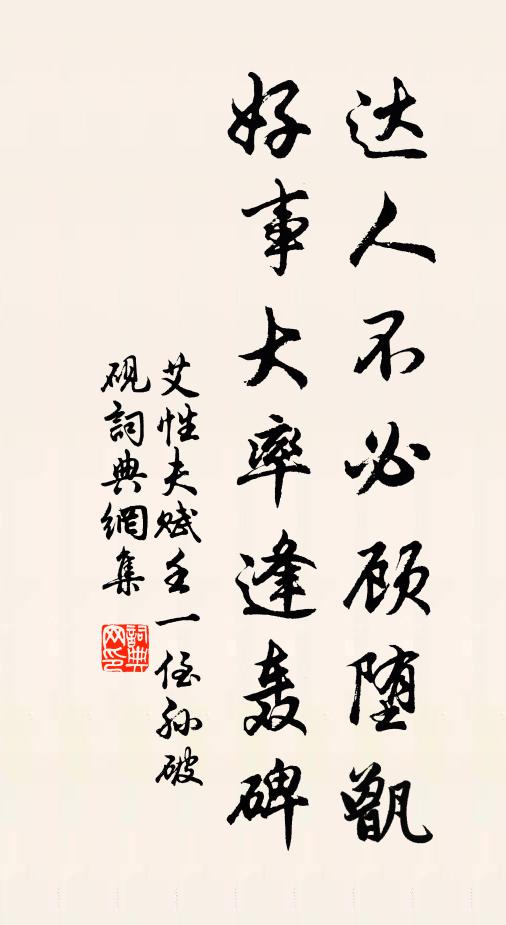 达人不必顾堕甑
好事大率逢轰碑
艾性夫赋壬一侄孙破
砚詞典網集
詞典网印